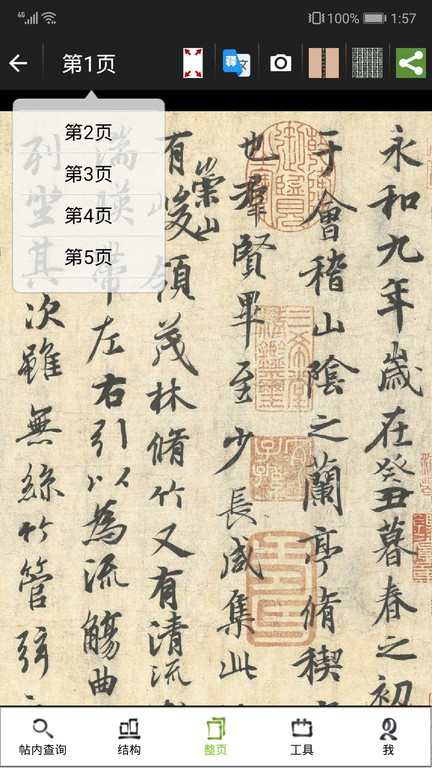 4G
100%
1:57
第1页
釋
文
第2页
第3页
第4页
第5页
永和九年歲在癸丑暮春之初
于會稽山陰之蘭亭脩稧
也羣賢畢至少長咸集此
有崇山峻領茂林脩竹又有清流
湍暎帶左右引以為流觴曲
列坐其次雖無絲竹管弦
帖内查询
结构
整页
工具
我